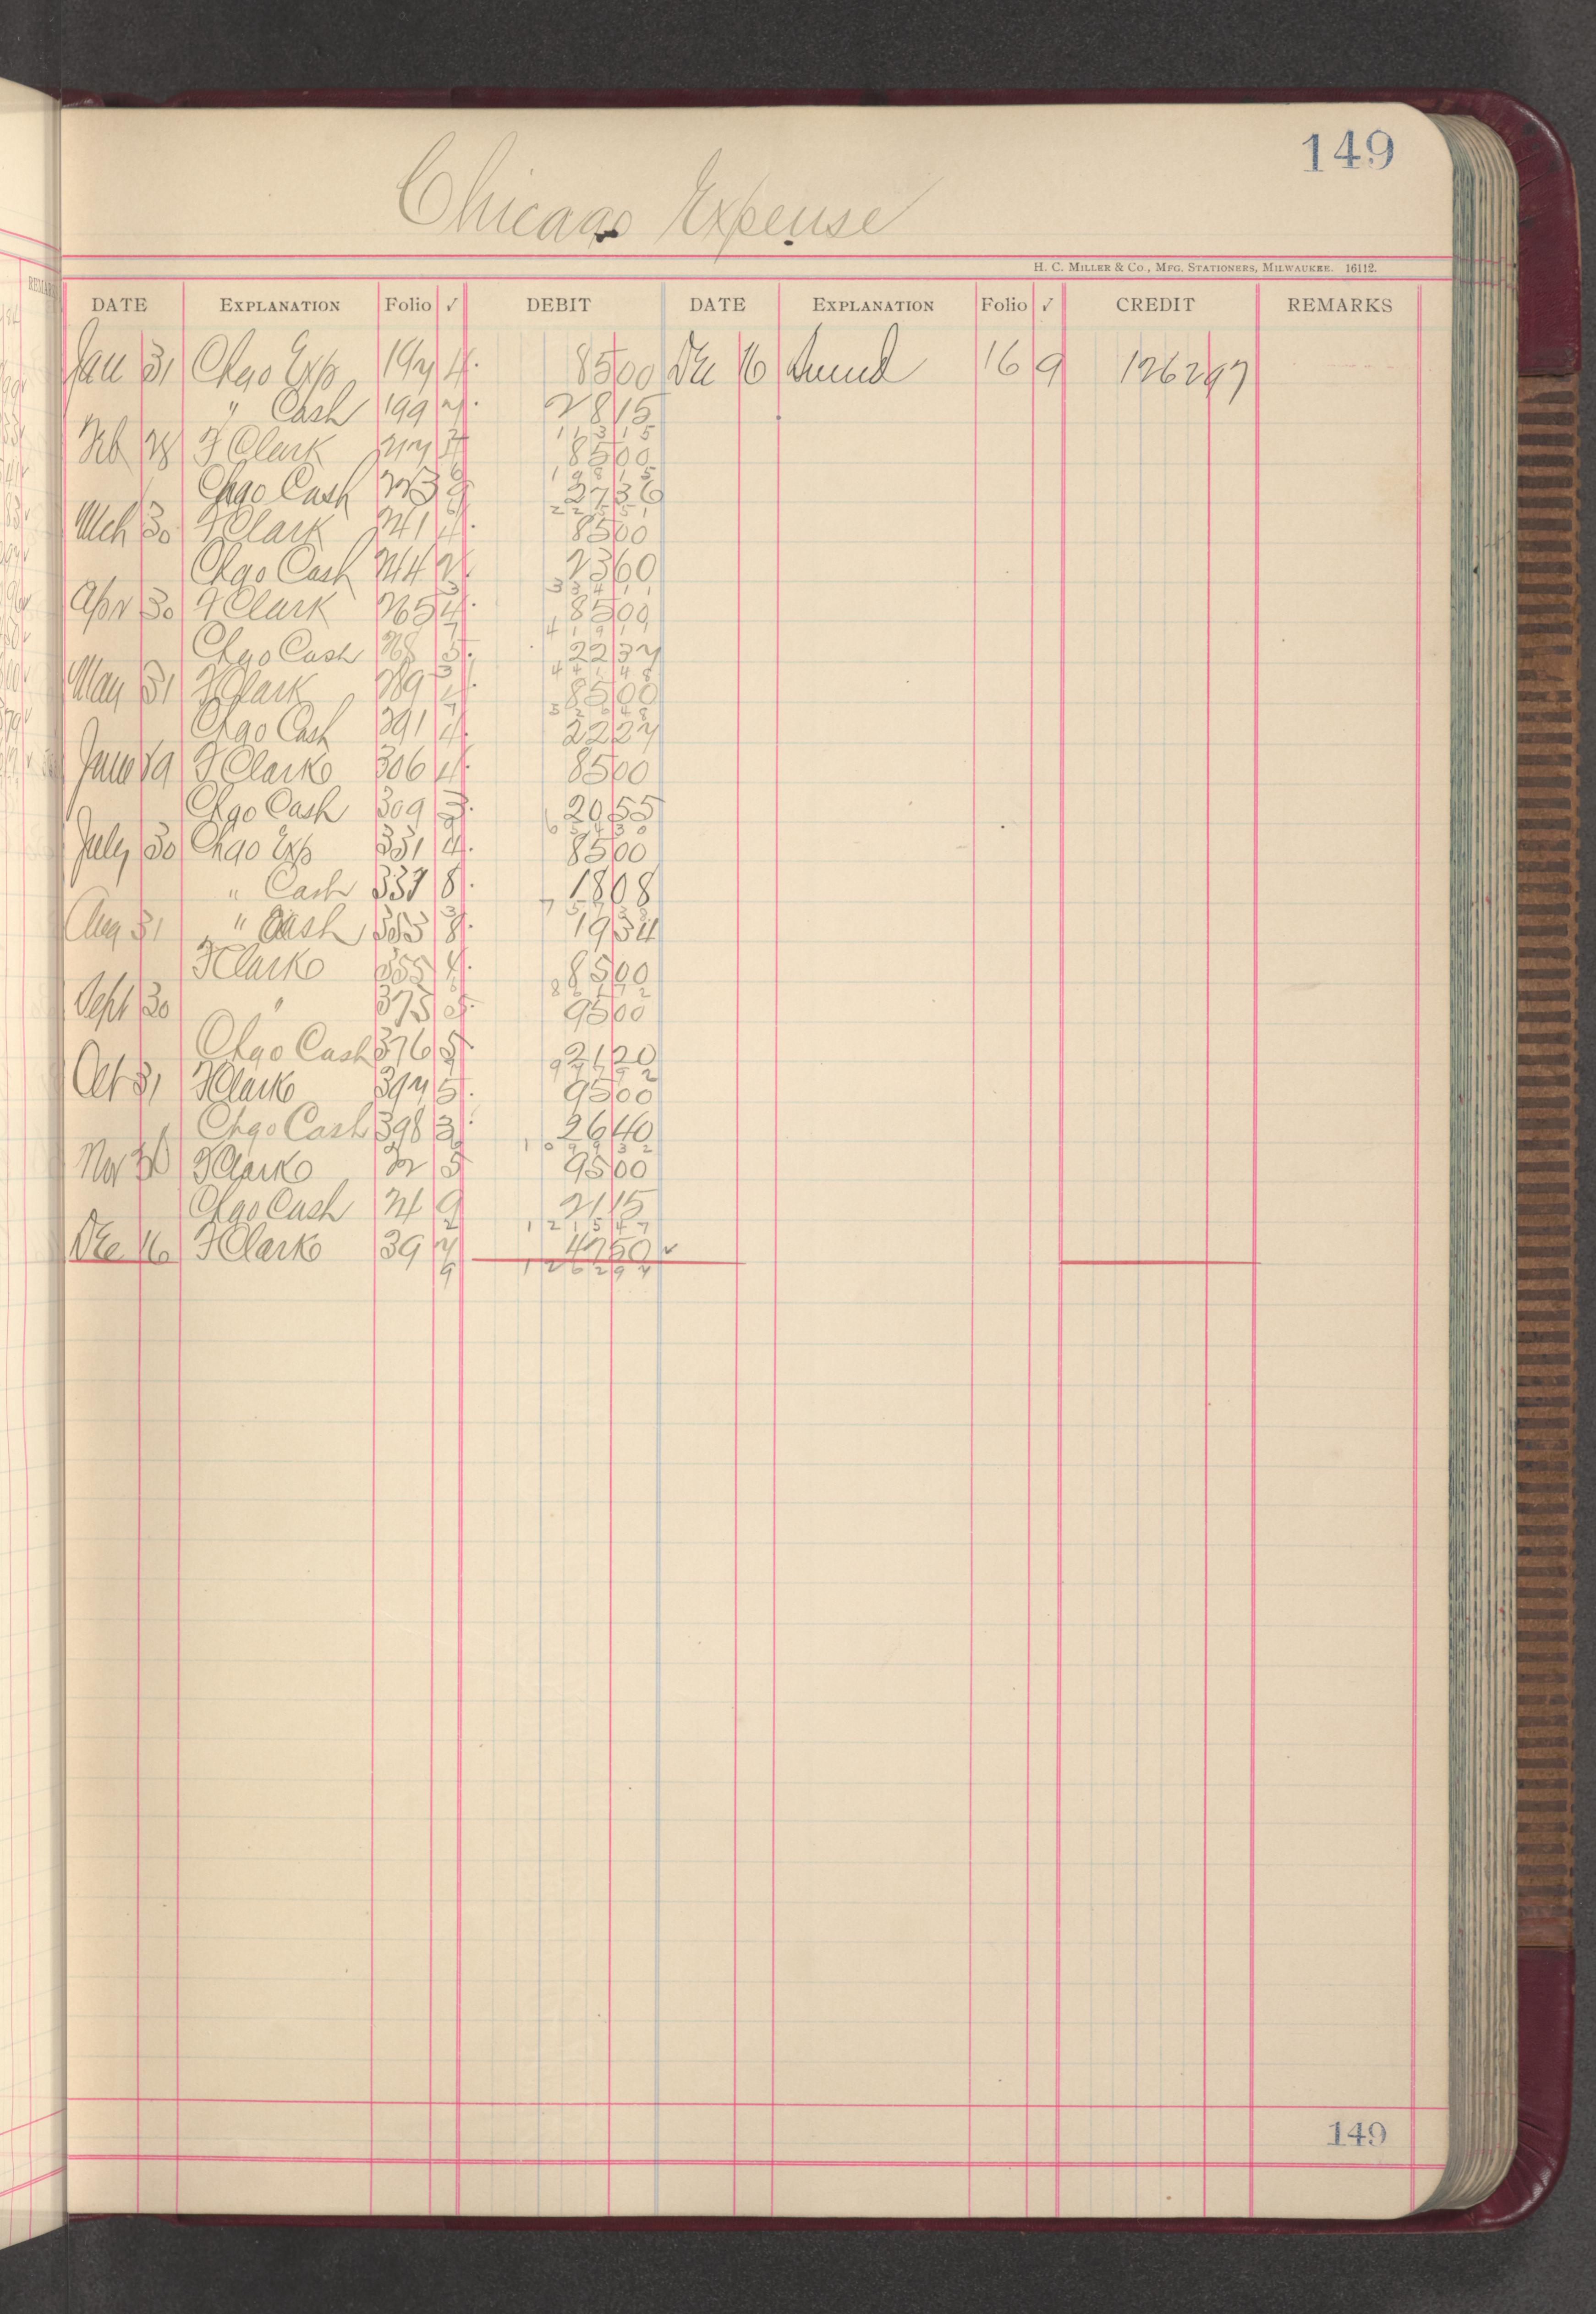 149
Chicago Expense
H. C. MILLER & CO., MFG. STATIONERS, MILWAUKEE. 16112.
DATE EXPLANATION Folio ✓ DEBIT DATE EXPLANATION Folio ✓ CREDIT REMARKS
Jan 31 Chgo Exp 197 4. 85 00 Dec 16 16 9 1262 97
" Cash 199 28 15
113 15
Feb 28 F Clark 217 85 00
198 15
Chgo Cash 223 27 36
225 51
Mch 30 F Clark 241 4. 85 00
Chgo Cash 244 23 60
334 11
Apr 30 F Clark 265 4. 85 00
419 11
Chgo Cash 22 37
441 48
May 31 F Clark 289 85 00
526 48
Chgo Cash 291 4. 22 27
June 29 F Clark 306 4. 85 00
Chgo Cash 309 3. 20 55
654 30
July 30 Chgo Exp 331 4. 85 00
" Cash 337 8. 18 08
757 38
Aug 31 " Cash 353 8. 19 34
F Clark 355 4. 85 00
861 72
Sept 30 " 375 5. 95 00
Chgo Cash 376 5. 21 20
977 92
Oct 31 F Clark 397 5. 95 00
Chgo Cash 398 3. 26 40
1099 32
Nov 30 F Clark 22 5 95 00
Chgo Cash 24 9 21 15
1215 47
Dec 16 F Clark 39 7 47 50 ✓
9 1262 97
149